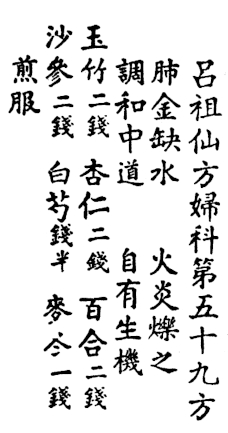 呂祖仙方婦科第五十九方
肺金缺水 火炎爍之
調和中道 自有生機
玉竹二錢 杏仁二錢 百合二錢
沙參二錢 白芍錢半 麥冬一錢
煎服